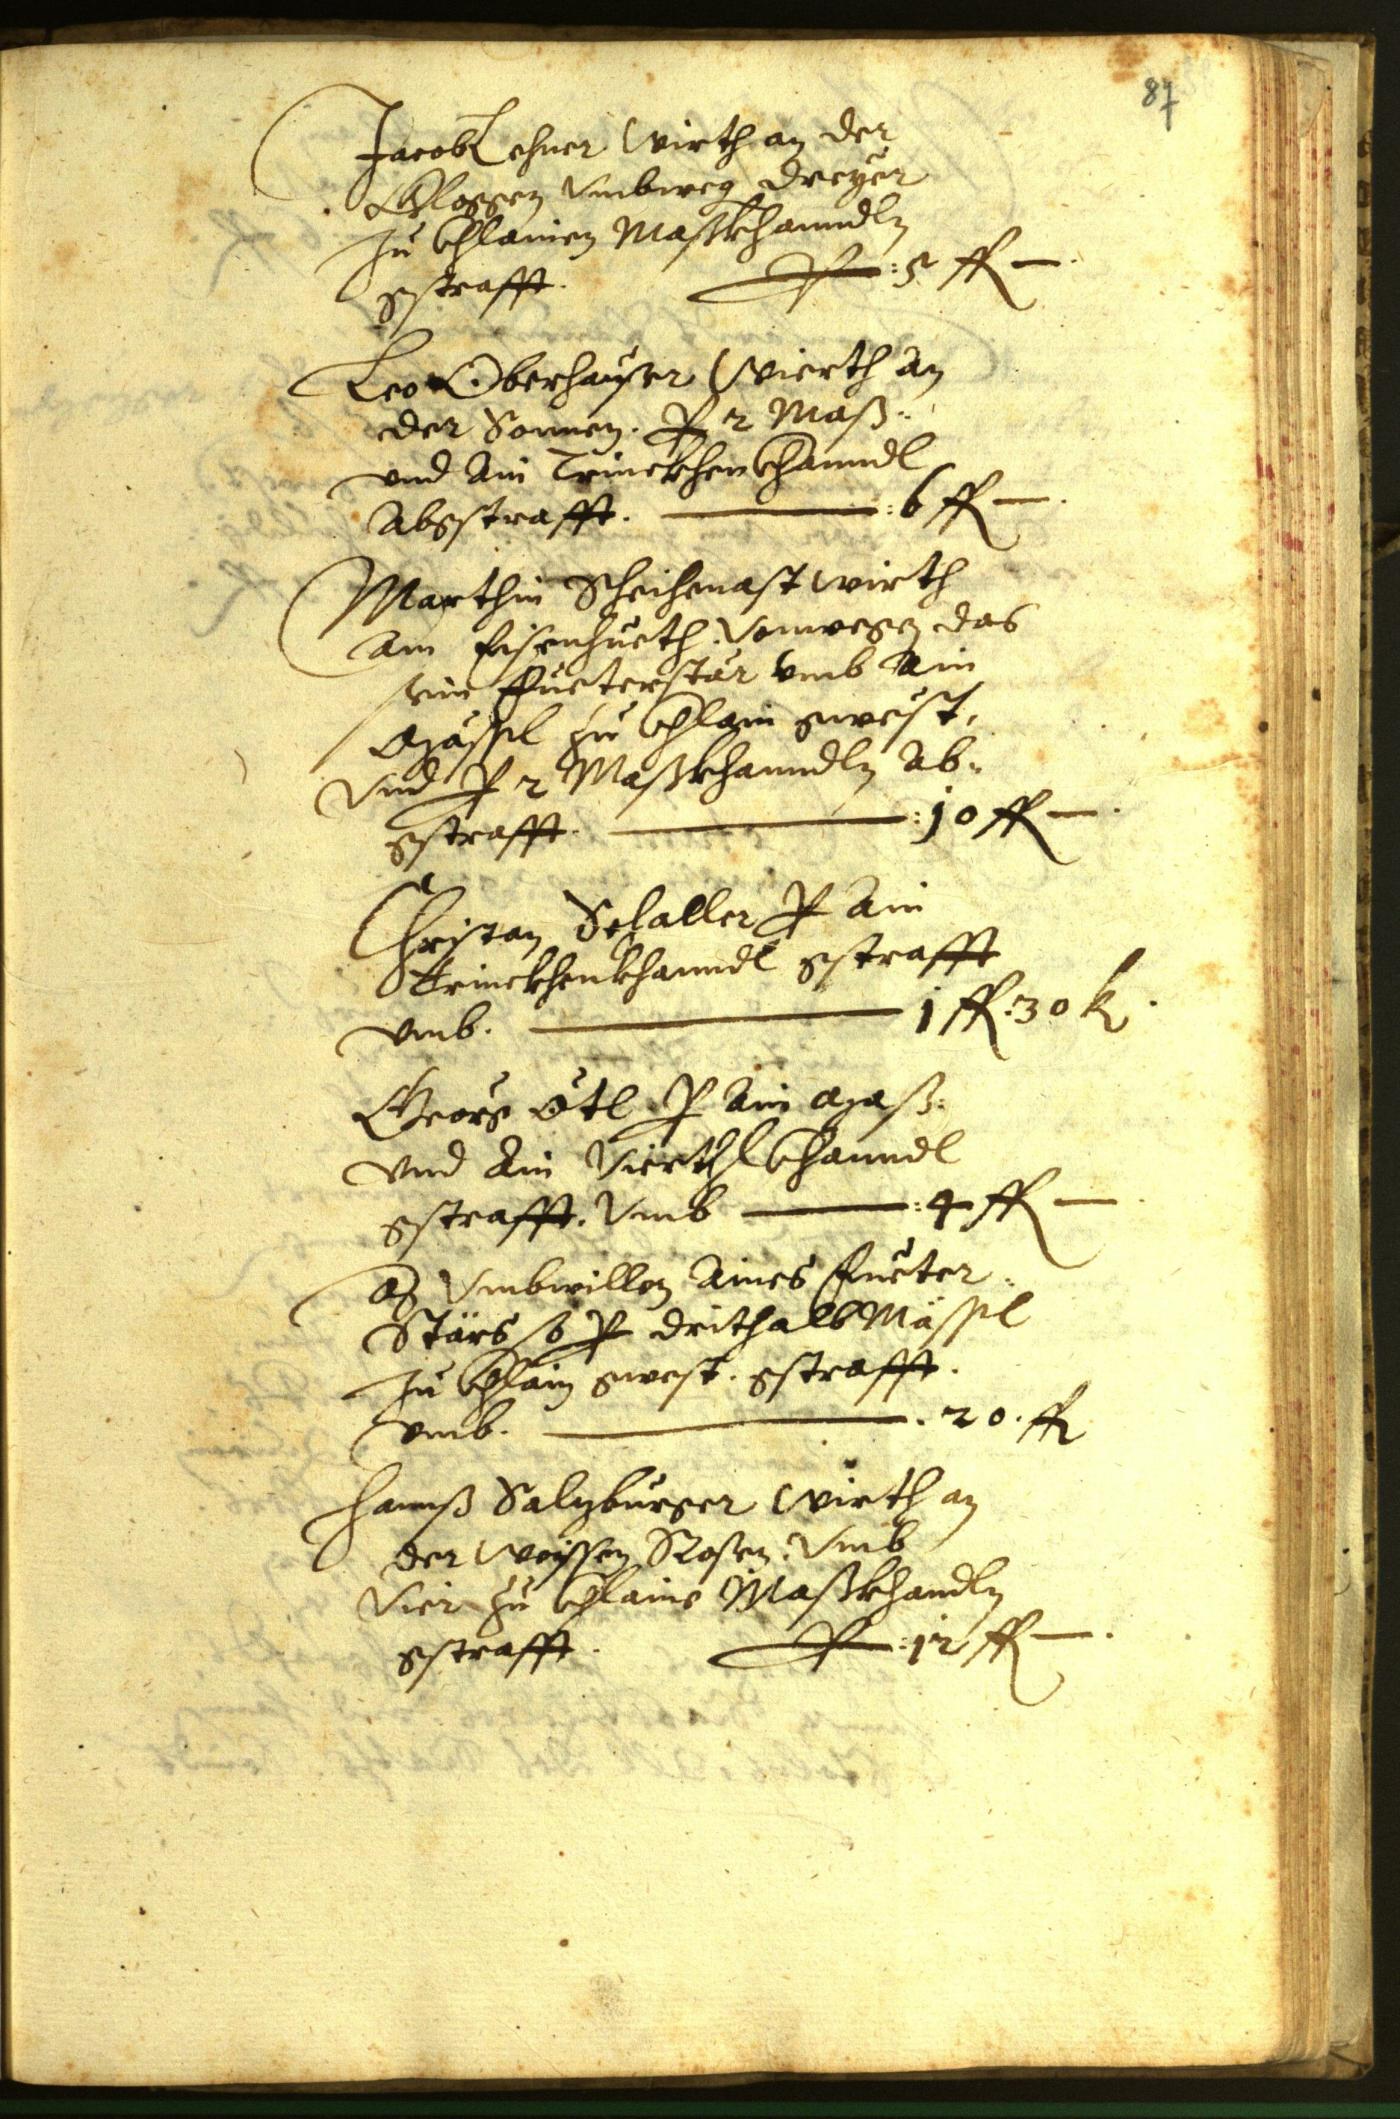 87
Jacob Lehner Wirth an der
Gloggen vmbweg dreyer
zu Khlainen Maßkhanndln
gstrafft. P: 5 fl —.
Leo Oberhauser Wierth an
der Sonnen. P 2 Maß:
vnd ain Trinckhen Khanndl
abgstrafft. — : 6 fl —.
Marthin Scheihenast Wirth
am Eisenhueth. Vonwegen das
sein Fueterstär vmb ain
Mässl zu Khlain gwest,
Vnd P 2 Maßkhanndln ab:
gstrafft. — : 10 fl —.
Christan Schaller P ain
Trinckhenkhanndl gstrafft
vmb. — 1 fl. 30 k.
Georg Ötl. P ain Maß:
vnd ain Vierthl Khanndl
gstrafft. Vmb — : 4 fl —.
Vmbwillen aines Fueter:
Stärs so P drithalb Mässl
zu Khlain gwest. gstrafft.
vmb. — . 20. fl
Hannß Salzburger Wirth an
der Weissen Rosen. Vmb
Vier zu Khlaine Maßkhandln
gstrafft. P: 12 fl —.